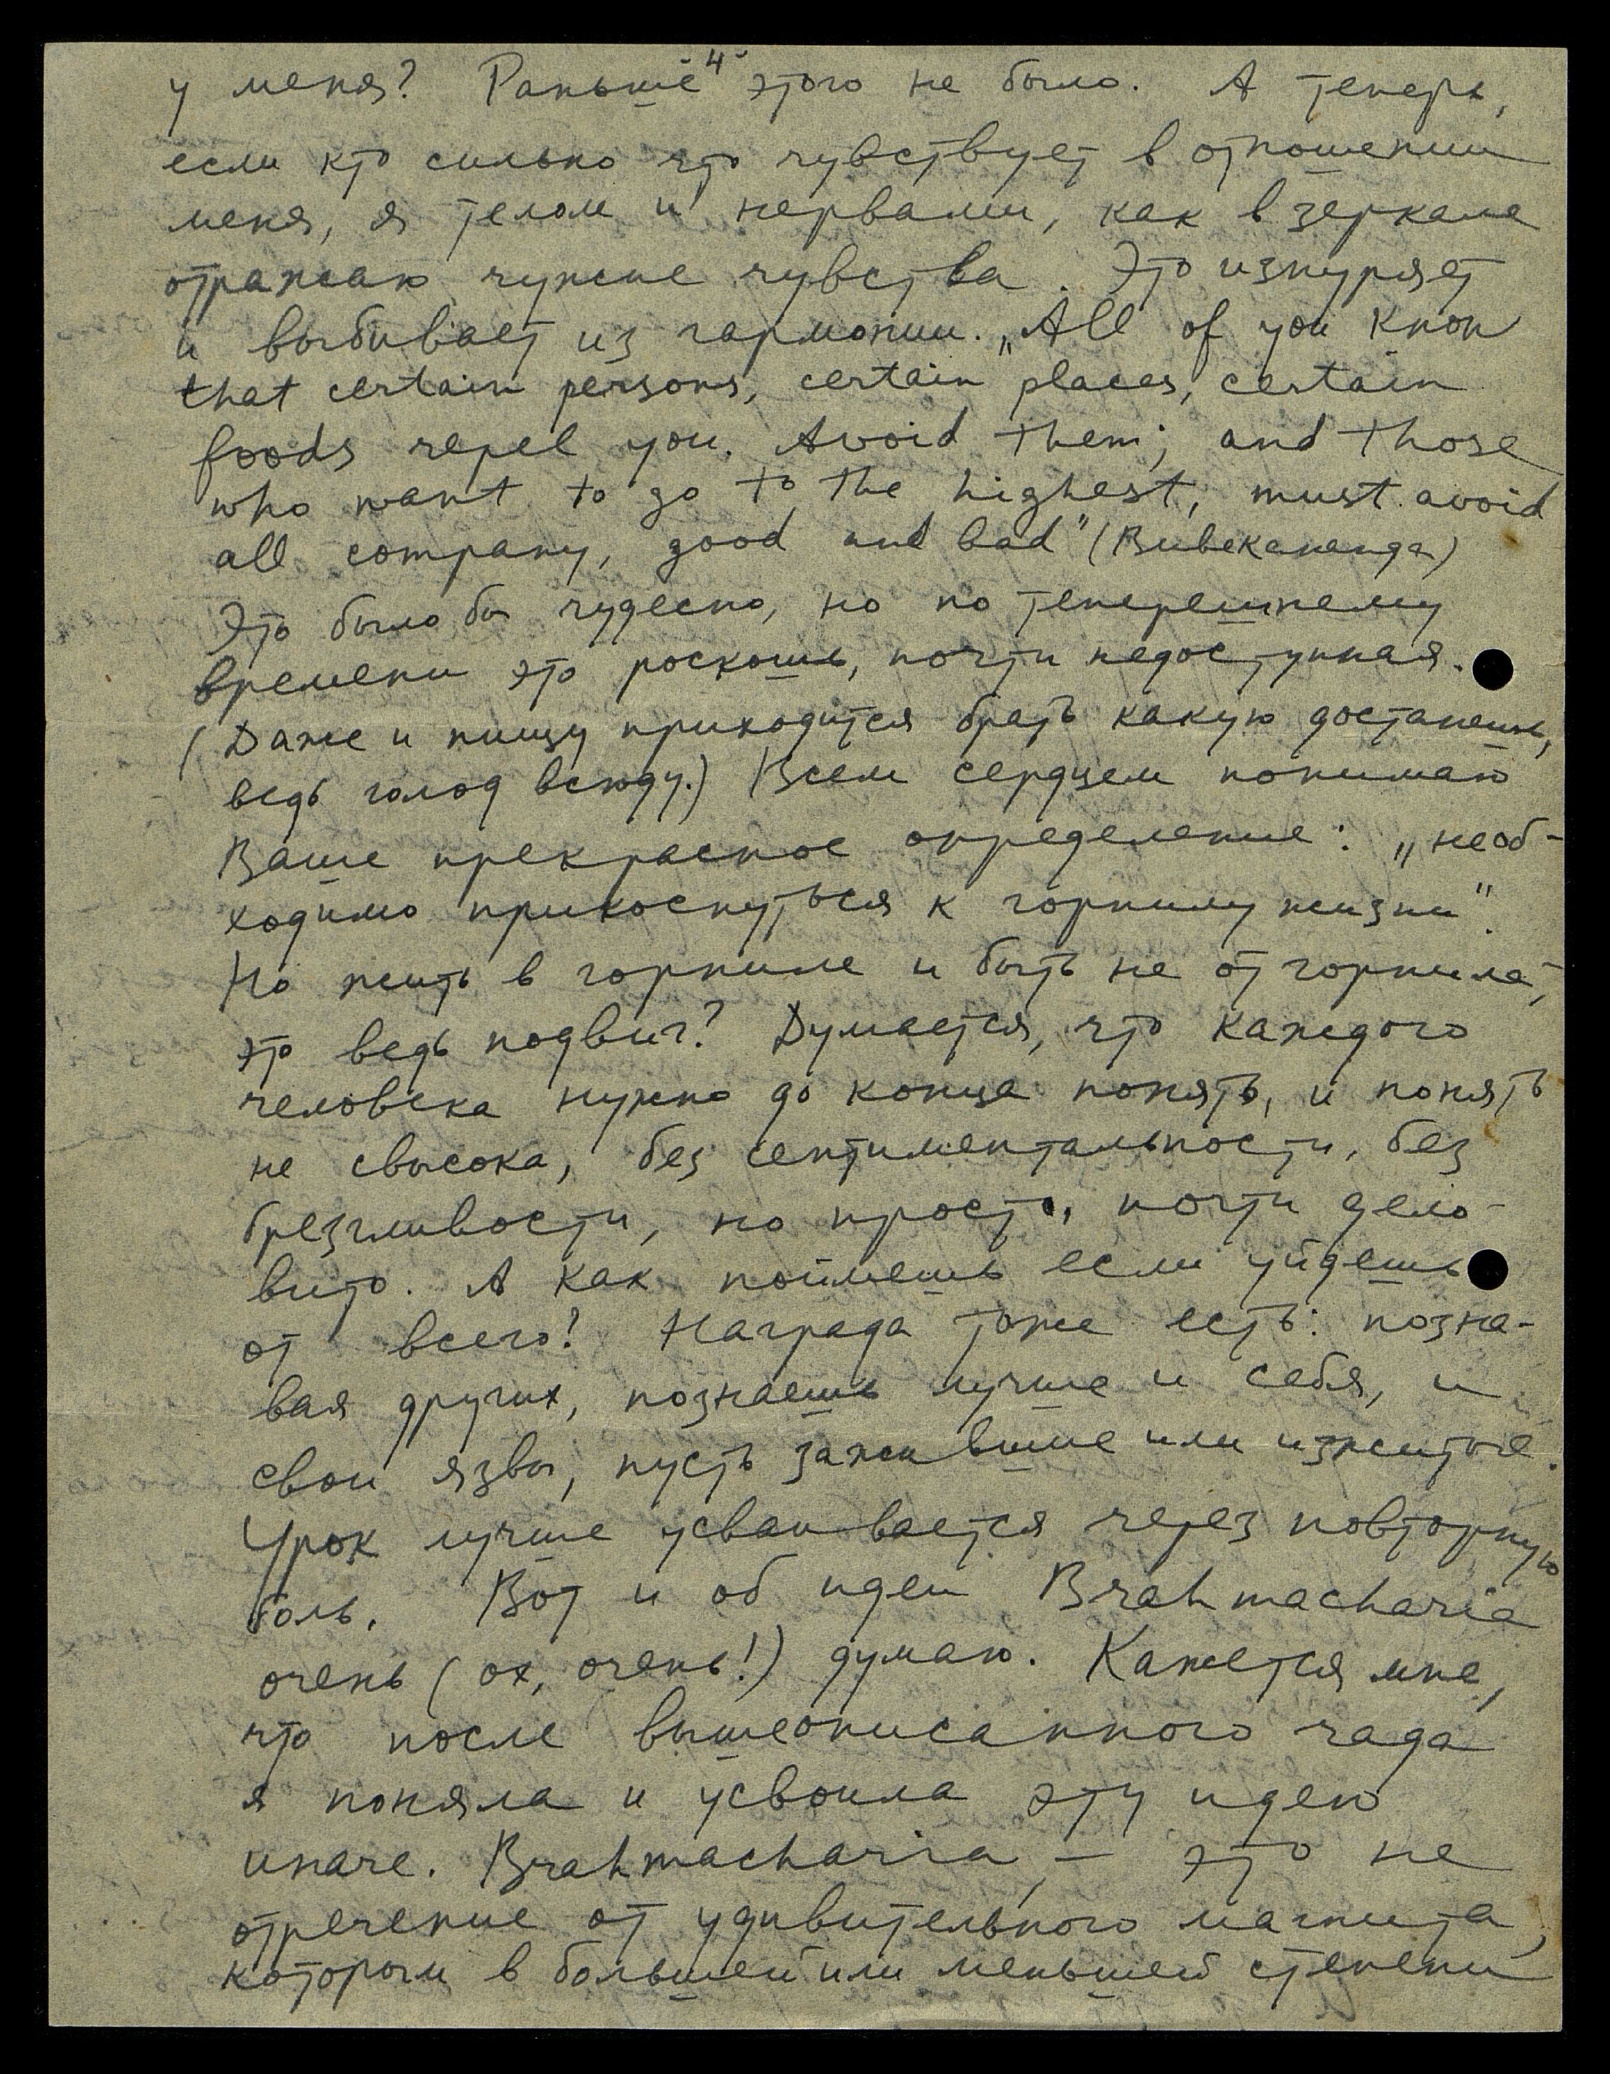 4
у меня? Раньше этого не было. А теперь,
если кто сильно что чувствует в отношении
меня, я телом и нервами, как в зеркале
отражаю чужие чувства. Это изнуряет
и выбивает из гармонии. „All of you know
that certain persons, certain places, certain
foods repel you. Avoid them; and those
who want to go to the highest, must avoid
all company, good and bad" (Вивекананда)
Это было бы чудесно, но по теперешнему
времени это роскошь, почти недоступная.
(Даже и пищу приходится брать какую достанешь,
ведь голод всюду.) Всем сердцем понимаю
Ваше прекрасное определение: „необ-
ходимо прикоснуться к горнилу жизни".
Но жить в горниле и быть не от горнила,
это ведь подвиг? Думается, что каждого
человека нужно до конца понять, и понять
не свысока, без сентиментальности, без
брезгливости, но просто, почти дело-
вито. А как поймешь если уйдешь
от всего? Награда тоже есть: позна-
вая других, познаешь лучше и себя, и
свои язвы, пусть зажившие или изжитые.
Урок лучше усваивается через повторную
боль. Вот и об идеи Brahmacharia
очень (ох, очень!) думаю. Кажется мне,
что после вышеописанного чада
я поняла и усвоила эту идею
иначе. Brahmacharia, — это не
отречение от удивительного магнита,
которым в большей или меньшей степени